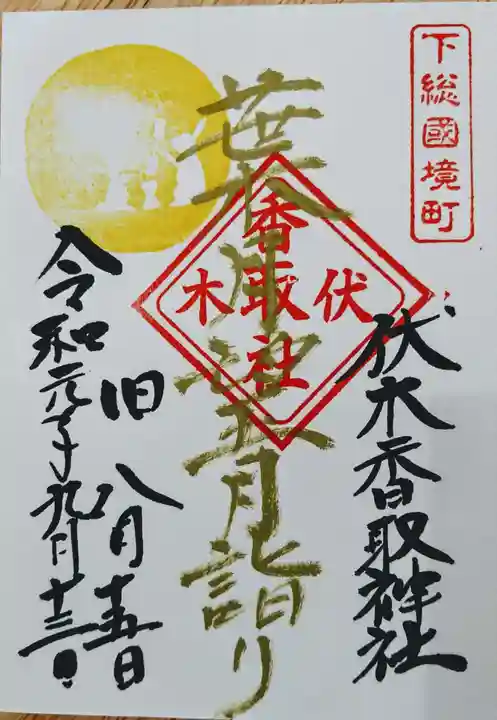 下総國境町
伏木香取神社
香取社
伏木
葉月月詣り
旧 八月十五日
令和元年九月十三日